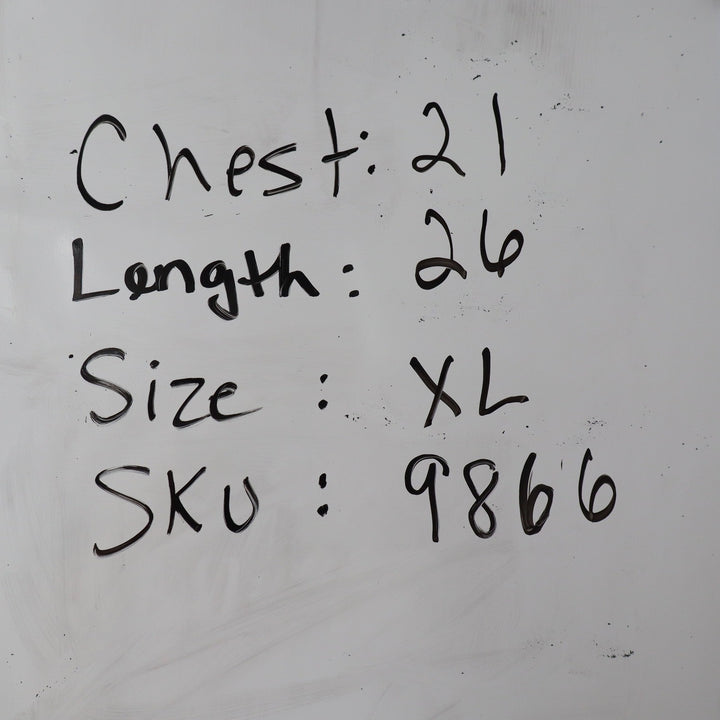 Chest: 21
Length: 26
Size : XL
SKU : 9866